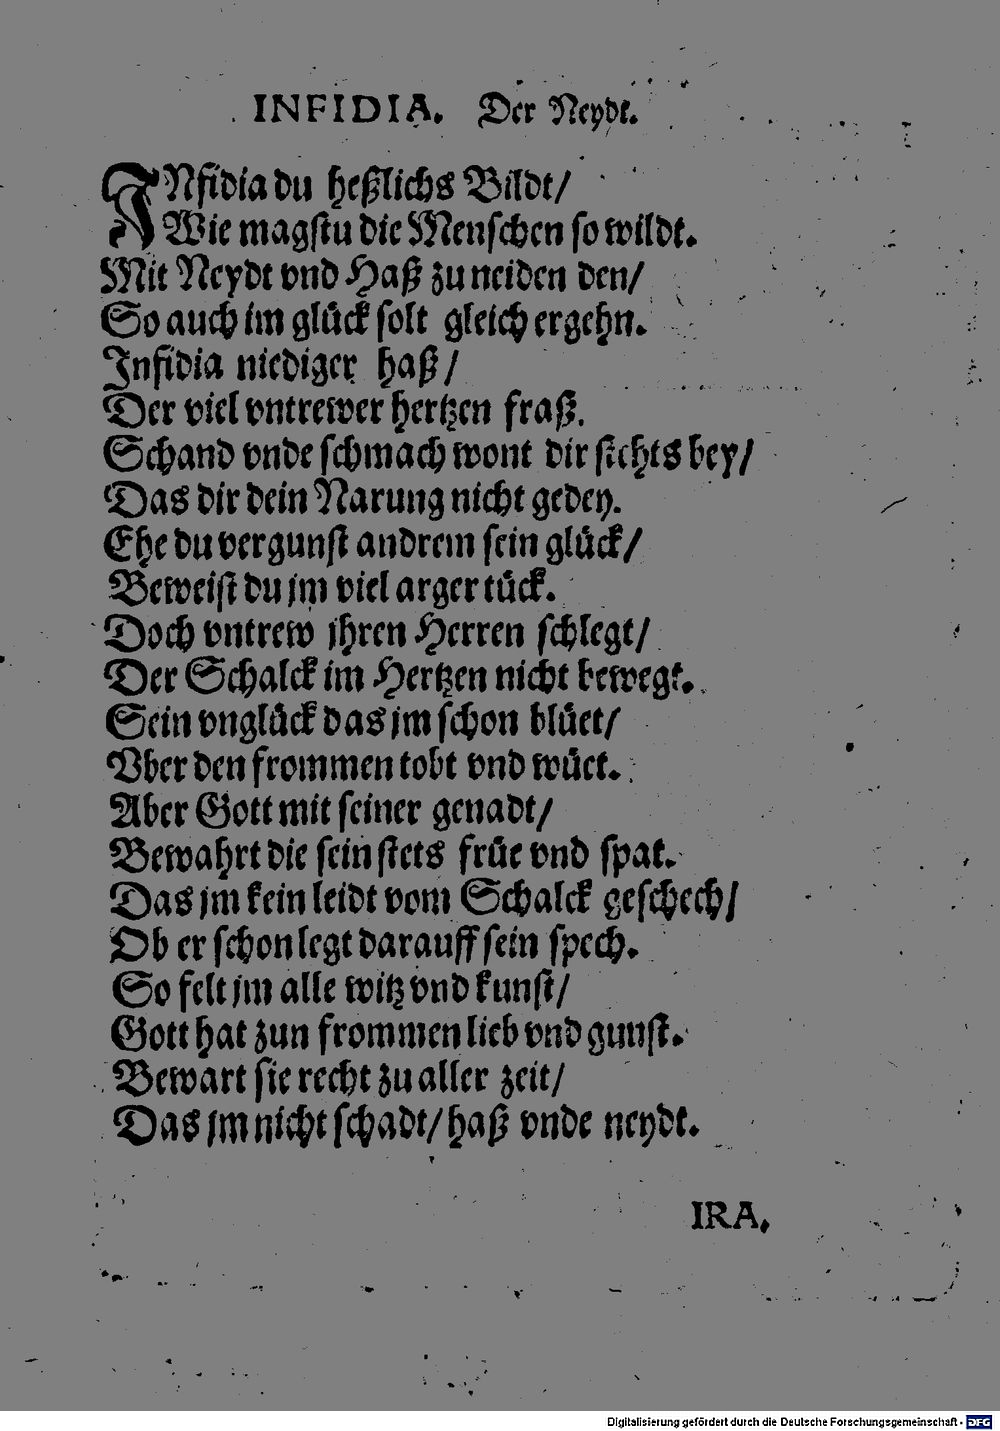 INFIDIA. Der Neydt.
INfidia du heßlichs Bildt/
Wie magstu die Menschen so wildt.
Mit Neydt vnd Haß zu neiden den/
So auch im glück solt gleich ergehn.
Infidia niediger haß/
Der viel vntrewer hertzen fraß.
Schand vnde schmach wont dir stehts bey/
Das dir dein Narung nicht gedey.
Ehe du vergunst andrem sein glück/
Beweist du jm viel arger tück.
Doch vntrew jhren Herren schlegt/
Der Schalck im Hertzen nicht bewegt.
Sein vnglück das jm schon blüet/
Vber den frommen tobt vnd wüet.
Aber Gott mit seiner genadt/
Bewahrt die sein stets früe vnd spat.
Das jm kein leidt vom Schalck geschech/
Ob er schon legt darauff sein spech.
So felt jm alle witz vnd kunst/
Gott hat zun frommen lieb vnd gunst.
Bewart sie recht zu aller zeit/
Das jm nicht schadt/ haß vnde neydt.
IRA.
Digitalisierung gefördert durch die Deutsche Forschungsgemeinschaft - DFG